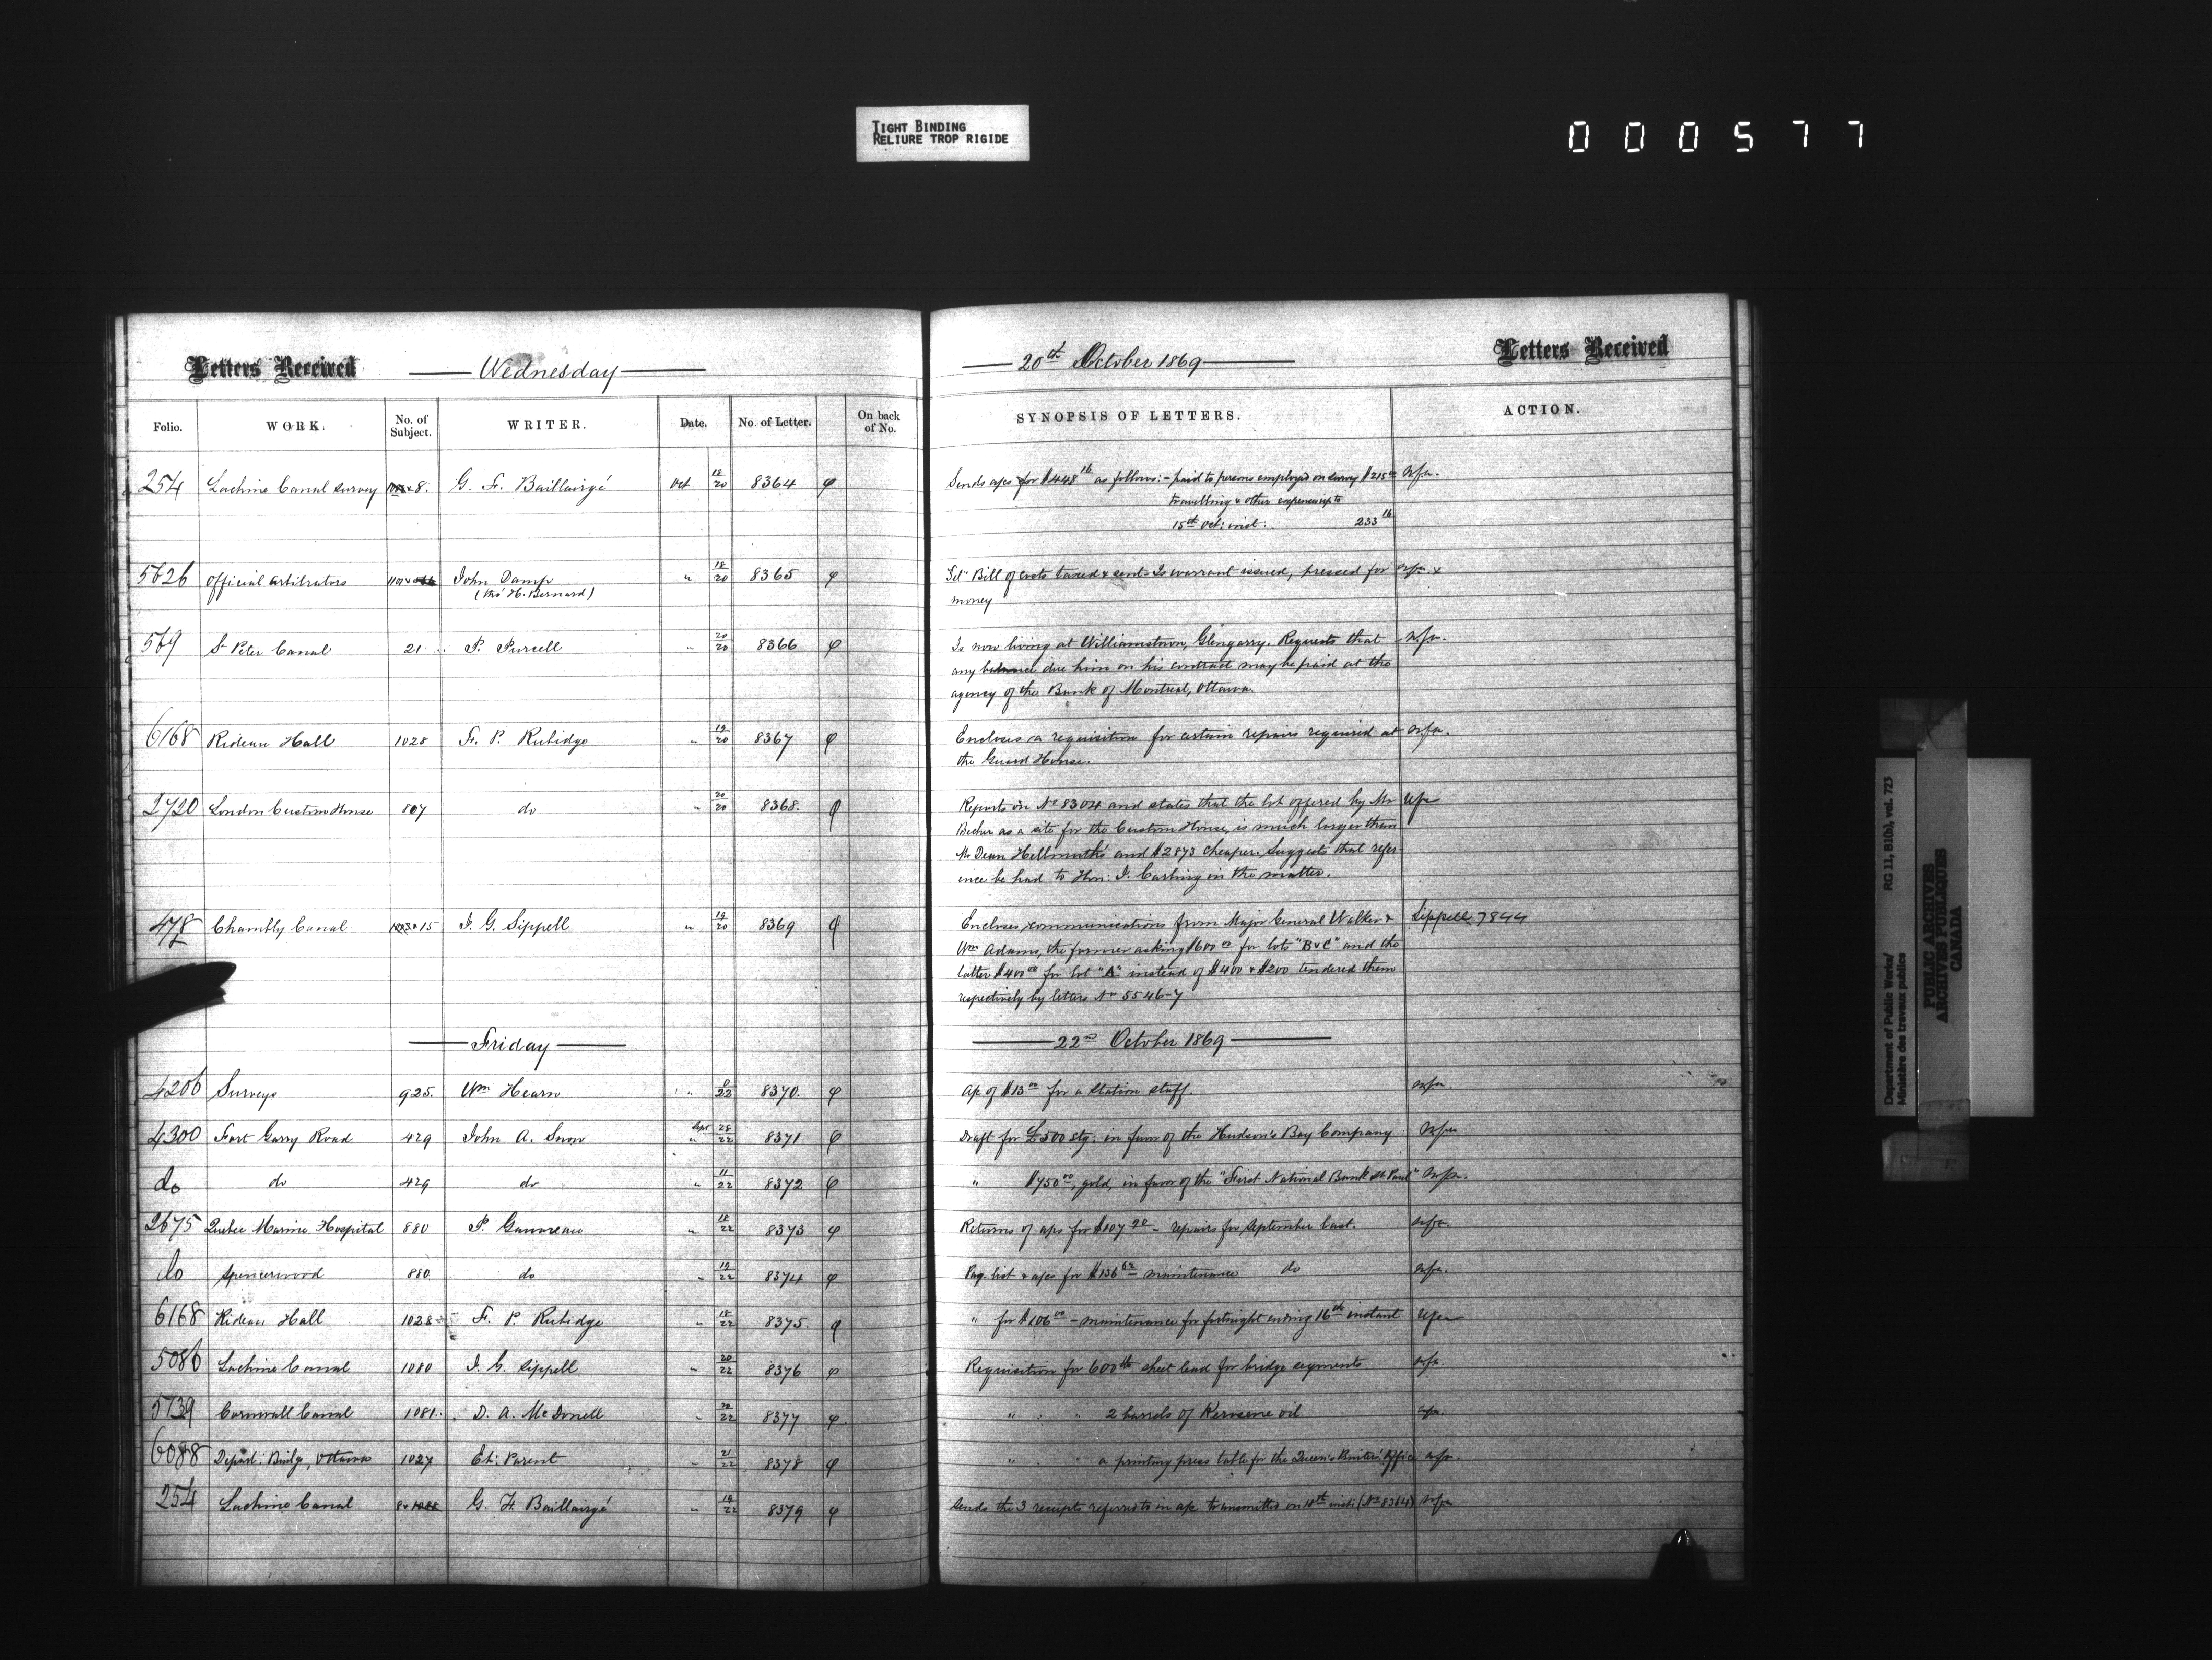 TIGHT BINDING
RELIURE TROP RIGIDE
000577
Letters Received Wednesday 20th October 1869 Letters Received
Folio. WORK. No. of Subject. WRITER. Date. No. of Letter. On back of No. SYNOPSIS OF LETTERS. ACTION.
254 Lachine Canal Survey 8. G. F. Baillairgé Oct 18/20 8364 Sends a/cs for $448 16 as follows:- paid to persons employed on survey $215 00
travelling & other expenses up to
15th Oct: inst: 233 16
5626 Official Arbitrators John Damp " 18/20 8365 Tel. Bill of costs taxed & sent. Is warrant issued, pressed for
(thro' H. Bernard) money
569 St Peter Canal 21 P. Purcell " 20/20 8366 Is now living at Williamstown, Glengarry. Requests that
any balance due him on his contract may be paid at the
agency of the Bank of Montreal, Ottawa.
6168 Rideau Hall 1028 F. P. Rubidge " 19/20 8367 Encloses a requisition for certain repairs required at
the Guard House.
2720 London Custom House 807 do " 20/20 8368. Reports on No 8304 and states that the lot offered by Mr
Becher as a site for the Custom House, is much larger than
Mr Dean Hellmuth's and $2873 cheaper. Suggests that refer
ence be had to Hon: J. Carling in the matter.
478 Chambly Canal 15 J. G. Sippell " 19/20 8369 Encloses communications from Major General Walker & Sippell 7844
Wm Adams, the former asking $600 00 for lots "B & C" and the
latter $400 00 for lot "A" instead of $400 & $200 tendered them
respectively by letters No 5546-7
Friday 22nd October 1869
4206 Surveys 925. Wm Hearn " 22 8370. a/c of $13 00 for a station staff.
4300 Fort Garry Road 429 John A. Snow Sept 28/22 8371 Draft for £500 stg: in favor of the Hudson's Bay Company
do do 429 do " 11/22 8372 " $750 00, gold, in favor of the "First National Bank St. Paul"
2675 Quebec Marine Hospital 880 P. Gauvreau " 18/22 8373 Returns of a/cs for $107 90 - repairs for September last.
do Spencerwood 880 do " 19/22 8374 Pay list & a/cs for $136 62 maintenance do
6168 Rideau Hall 1028 F. P. Rubidge " 18/22 8375. " for $106 00 - maintenance for fortnight ending 16th instant
5086 Lachine Canal 1080 J. G. Sippell " 20/22 8376 Requisition for 600 lb sheet lead for bridge segments
5739 Cornwall Canal 1081. D. A. McDonell " 20/22 8377 " " 2 barrels of Kerosene oil
6088 Depart: Bdgs, Ottawa 1027 Et: Parent 21/22 8378 " " a printing press table for the Queen's Printer's Office
254 Lachine Canal 8 G. F. Baillairgé " 19/22 8379 Sends the 3 receipts referred to in a/c transmitted on 18th inst: (No 8364)
Department of Public Works/
Ministère des travaux publics
RG 11, B1(b), vol. 723
PUBLIC ARCHIVES
ARCHIVES PUBLIQUES
CANADA